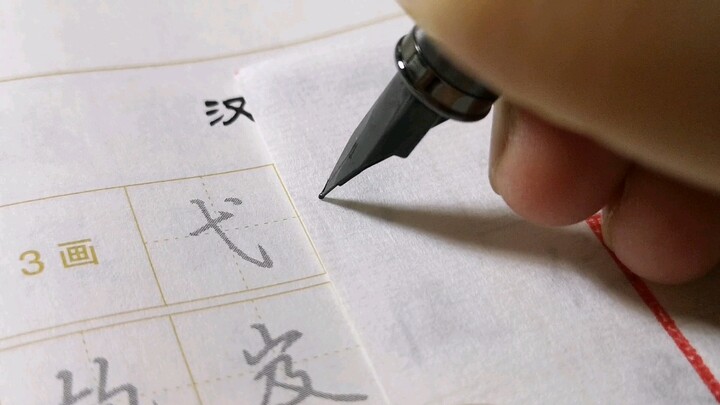 汉
3 画 弋
岌